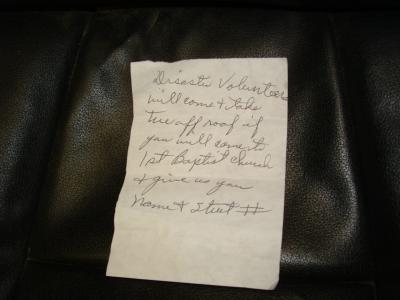 Disaster Volunteers
will come & take
tree off roof if
you will come to
1st Baptist Church
& give us you
Name & Street #